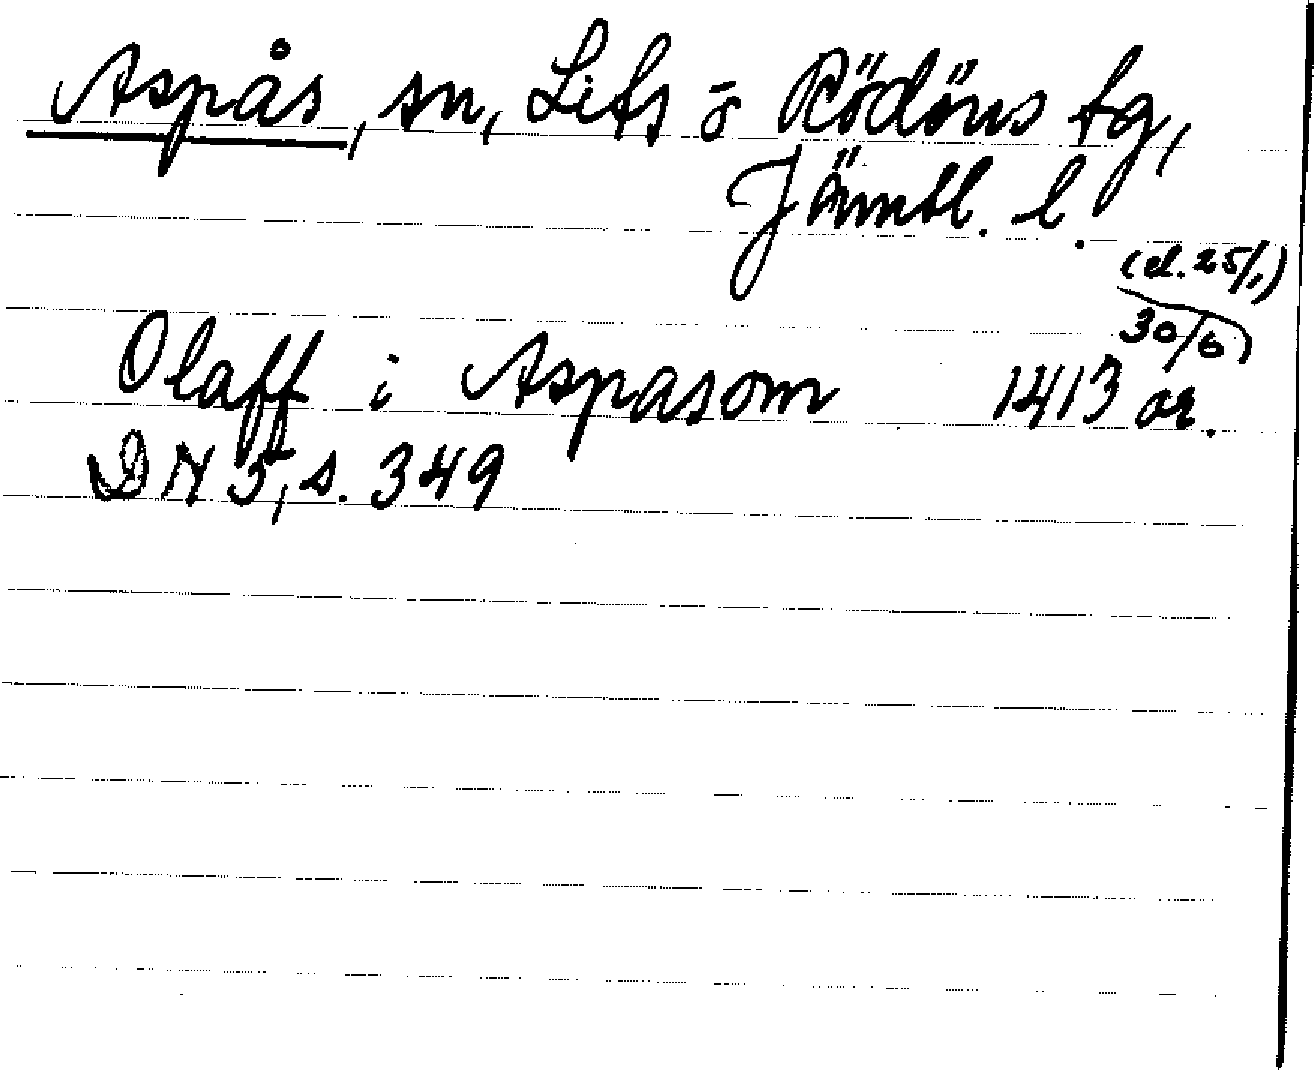 Aspås, sn, Lits o Rödöns tg,
Jämtl. l.
(el. 25/1)
30/6)
Olaff i Aspasom 1413 or.
DN 5, s. 349